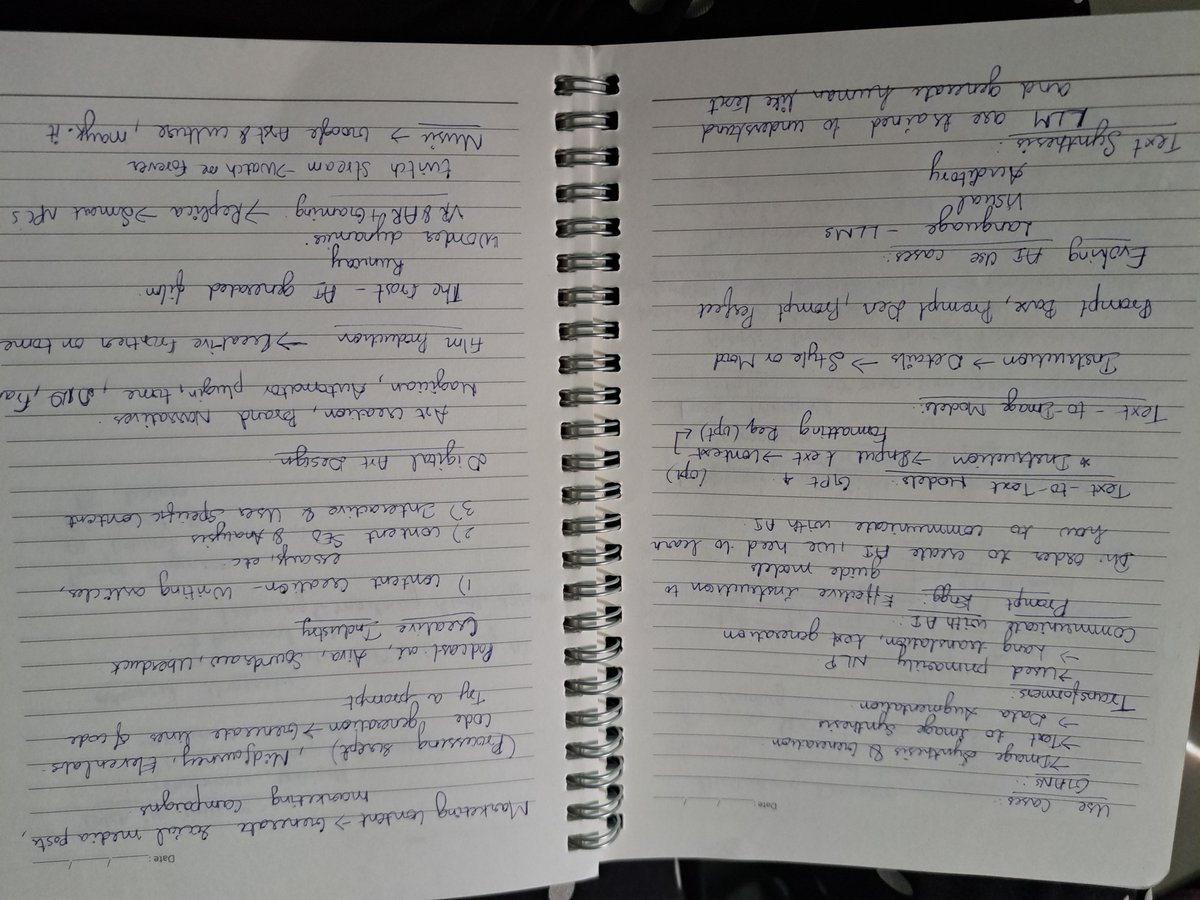 Date:
Use cases:
GANNs:
→ Image Synthesis & Generation
→ Text to Image Synthesis
→ Data Augmentation
Transformers:
→ Used primarily NLP
→ Lang translation, text generation
Communicate with AI:
Prompt Engg: Effective instruction to
guide models
In order to create AI, we need to learn
how to communicate with AI.
Text-to-Text Models: GPT 4 (opt)
* Instruction → Input text → Context
Formatting Req (opt)
Text-to-Image Models:
Instruction → Details → Style or Mood
Prompt Base, Prompt Den, Prompt Perfect
Evolving AI Use cases:
Language - LLMs
Visual
Auditory
Text Synthesis:
LLM are trained to understand
and generate human like text
Date:
Marketing Content → Generate social media posts,
marketing campaigns
(Processing script), Midjourney, Elevenlabs
Code generation → Generate lines of code
Try a prompt
Podcast.ai, Aiva, Soundraw, Uberduck
Creative Industry
1) Content Creation - Writing articles,
essays, etc
2) Content SEO & Analysis
3) Interactive & User Specific Content
Digital Art Design
Art Creation, Brand Narratives
Magician, Automator plugin, tome, DID,
Film Production → Creative fraction on tome
The frost - AI generated film
Runway
Wonder dynamics.
VR & AR Gaming: → Replica → Smart NPC's
twitch stream → Watch me forever
Music → Google Art & culture,